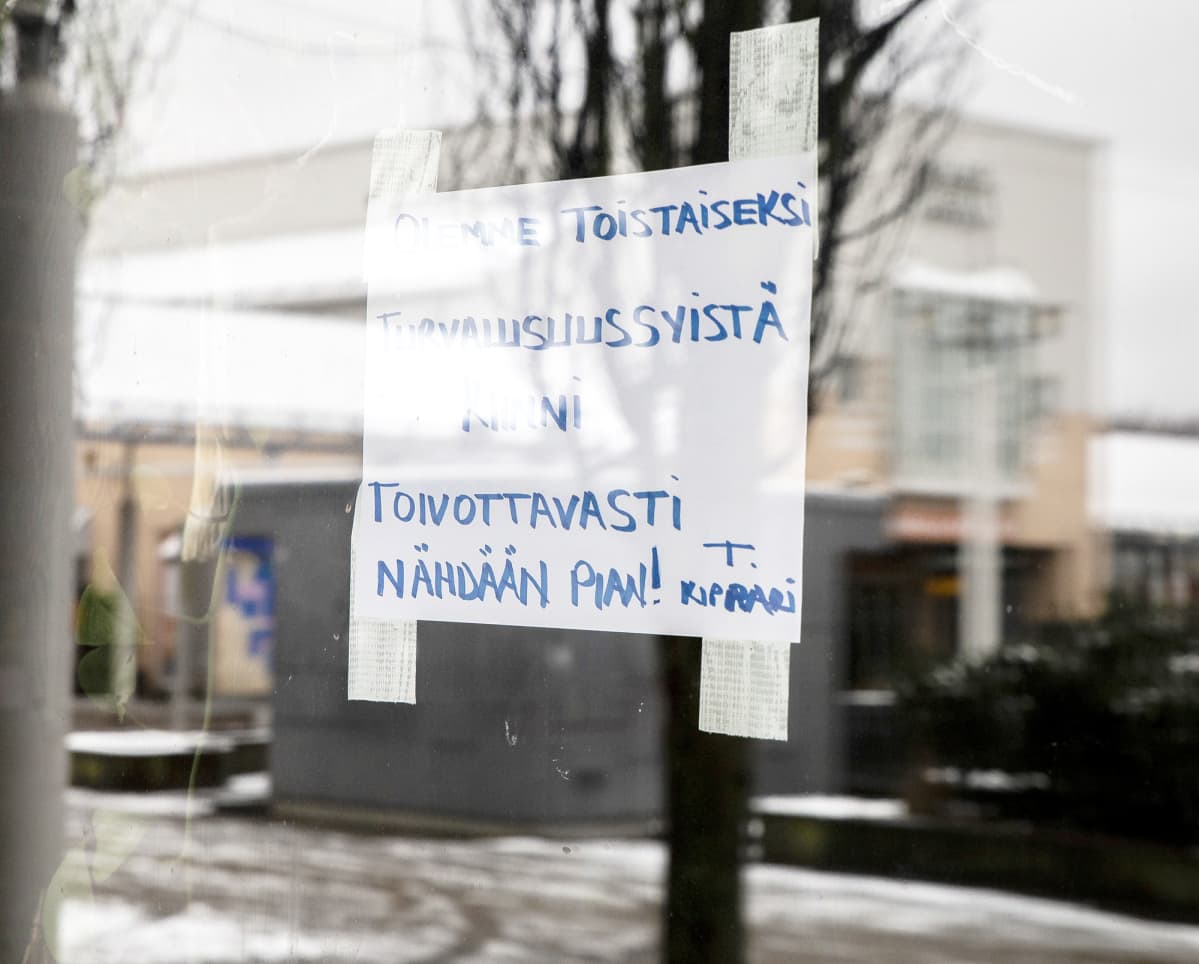 OLEMME TOISTAISEKSI
TURVALLISUUSSYISTÄ
KIINNI
TOIVOTTAVASTI
NÄHDÄÄN PIAN! T.
KIPPARI